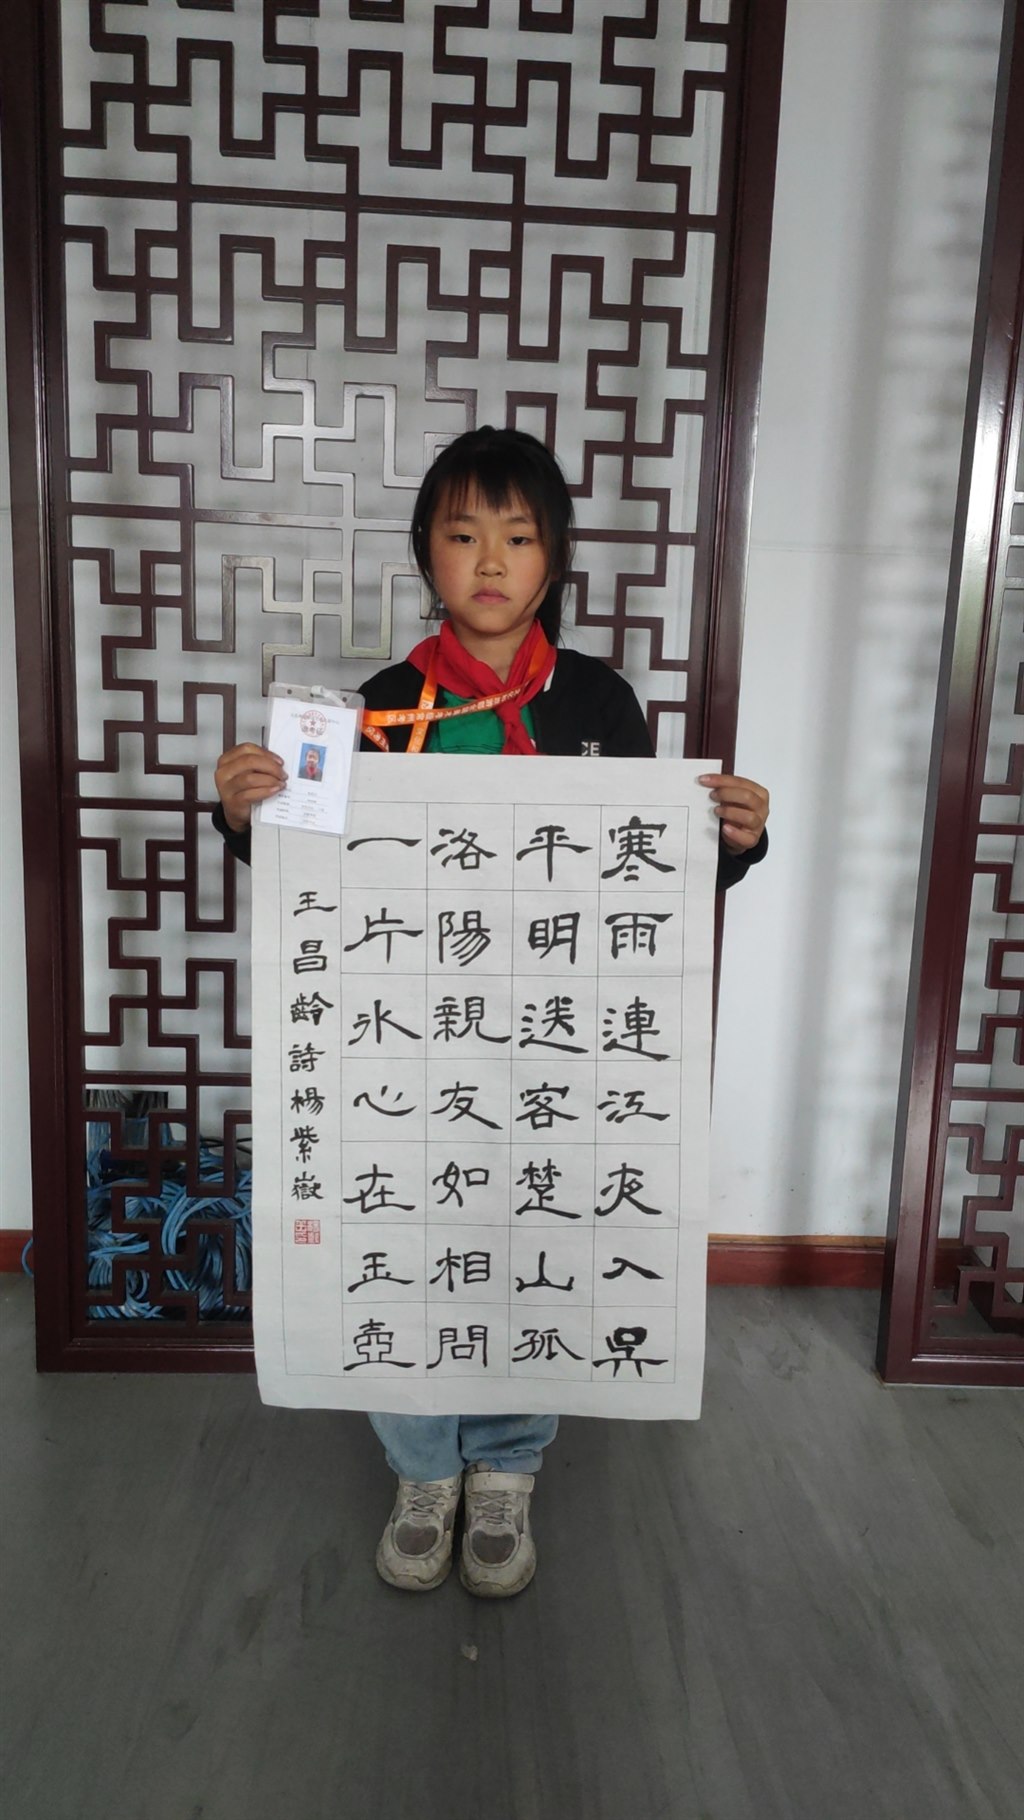 寒雨連江夜入吳
平明送客楚山孤
洛陽親友如相問
一片氷心在玉壺
王昌齡詩楊紫嶽
CE